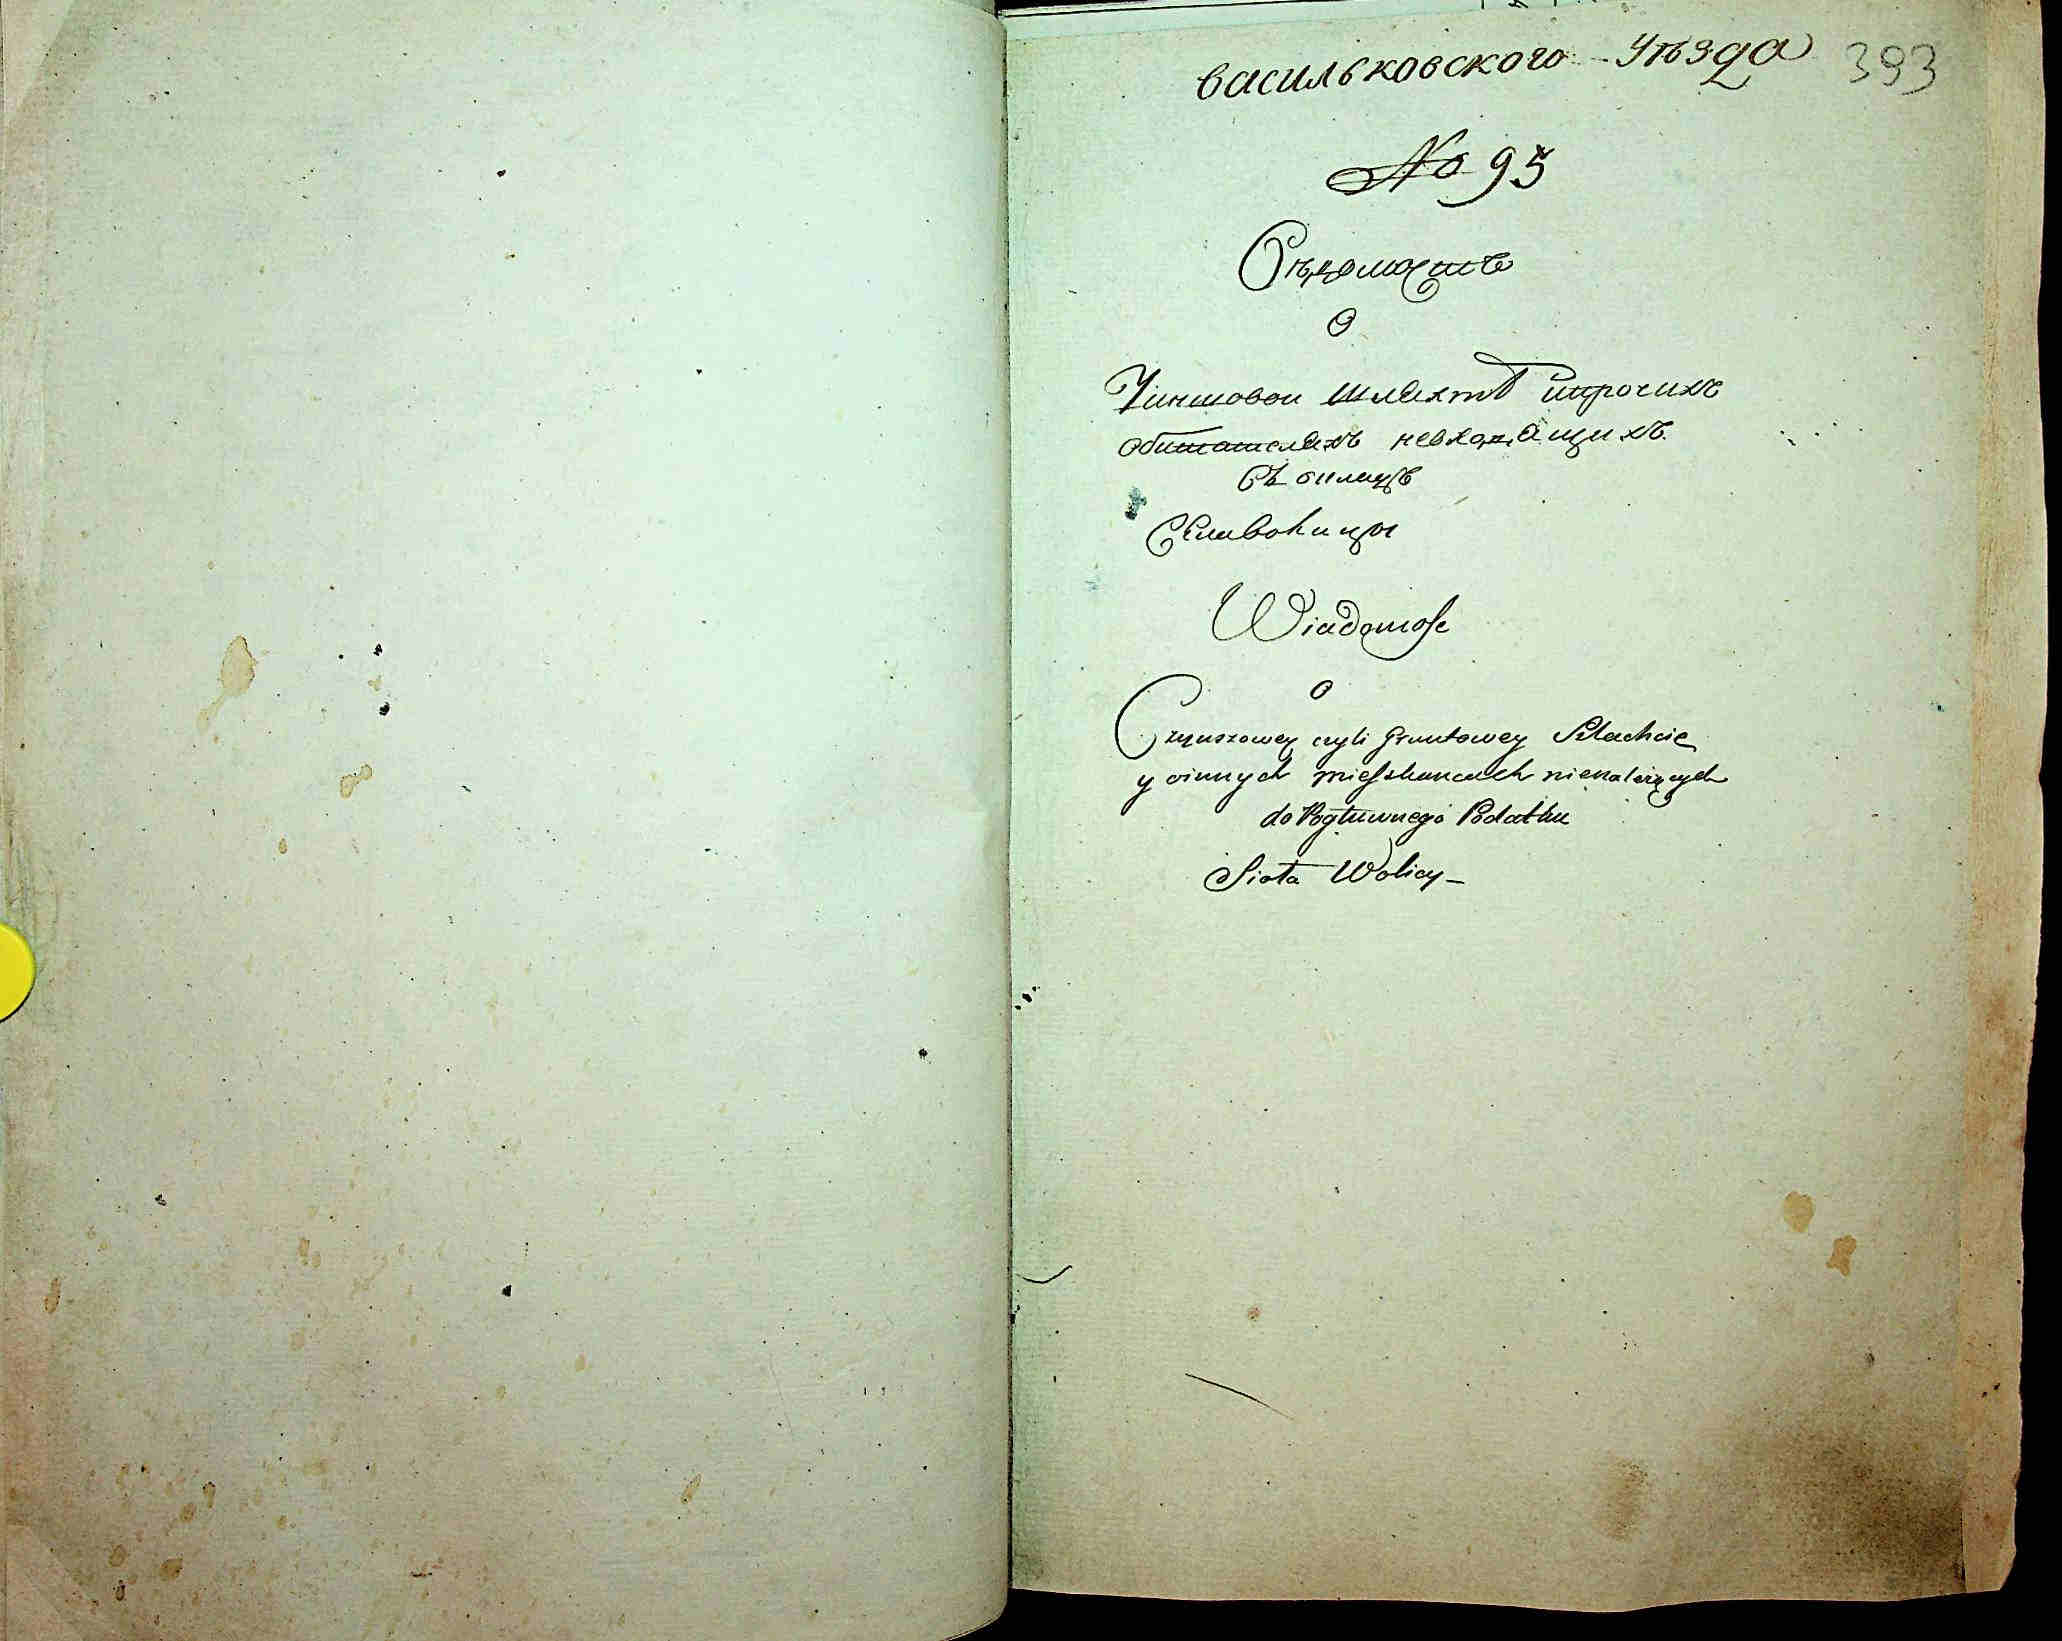 васильковского Уѣзда 393
No 95
Вѣдомость
О
Чиншовои шляхтѣ ипрочихъ
обитателяхъ невходящихъ
въ окладъ
Села Волицы
Wiadomosc
o
Czynszowey czyli Gruntowey Szlachcie
y oinnych miesskancach nienalezących
do Pogłuwnego Podatku
Sioła Wolicy_